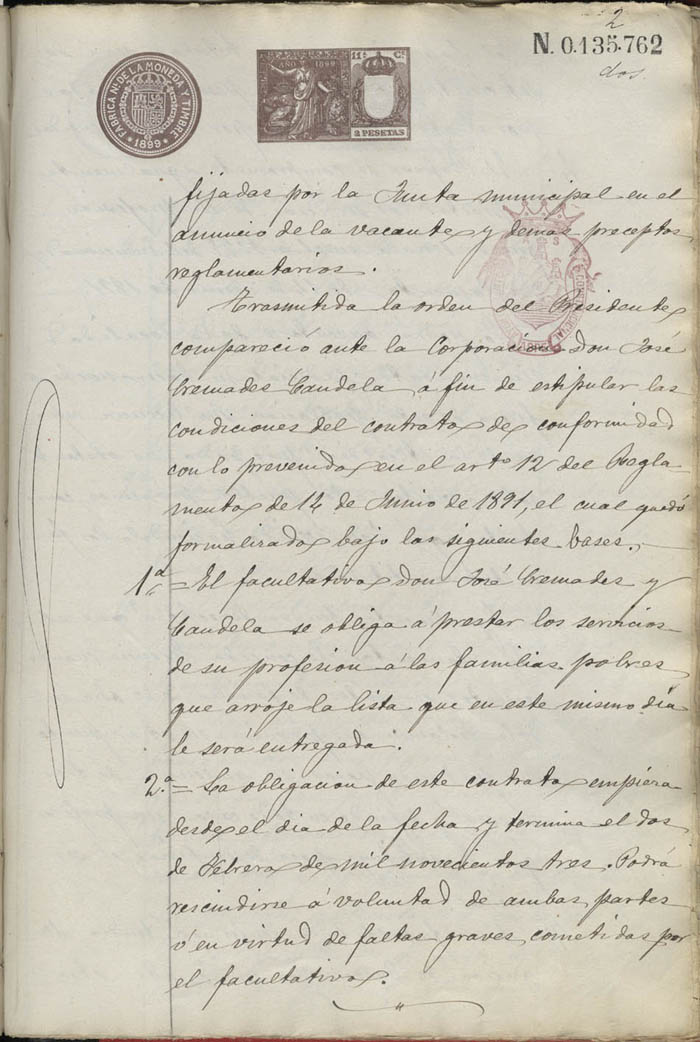 2
N. 0.135.762
dos.
FABRICA NL. DE LA MONEDA Y TIMBRE
1899
AÑO 1899
11ª Cª
2 PESETAS
fijadas por la Junta municipal en el
anuncio de la vacante y demas preceptos
reglamentarios.
Trasmitida la orden del Presidente
compareció ante la Corporacion don José
Cremades Candela á fin de estipular las
condiciones del contrato de conformidad
con lo prevenido en el artº 12 del Regla-
mento de 14 de Junio de 1891, el cual quedó
formalizado bajo las siguientes bases.
1ª = El facultativo don José Cremades y
Candela se obliga á prestar los servicios
de su profesion á las familias pobres
que arroje la lista que en este mismo dia
le será entregada.
2.ª = La obligacion de este contrato empieza
desde el dia de la fecha y termina el dos
de Febrero de mil novecientos tres. Podrá
rescindirse á voluntad de ambas partes
ó en virtud de faltas graves cometidas por
el facultativo.